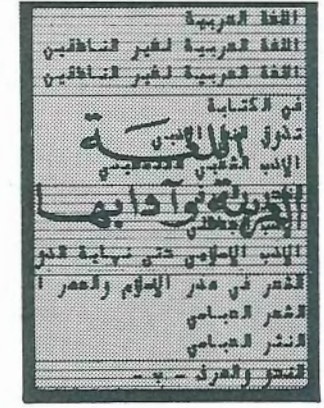 اللغة العربية
اللغة العربية لغير الناطقين
اللغة العربية لغير الناطقين
في الكتابة
تذوق
اللغة
الأدب الشعبي
العربية وآدابها
الأدب الإسلامي حتى نهاية
الشعر في صدر الإسلام والعصر ا
الشعر العباسي
النثر العباسي
النحو والصرف - ب -